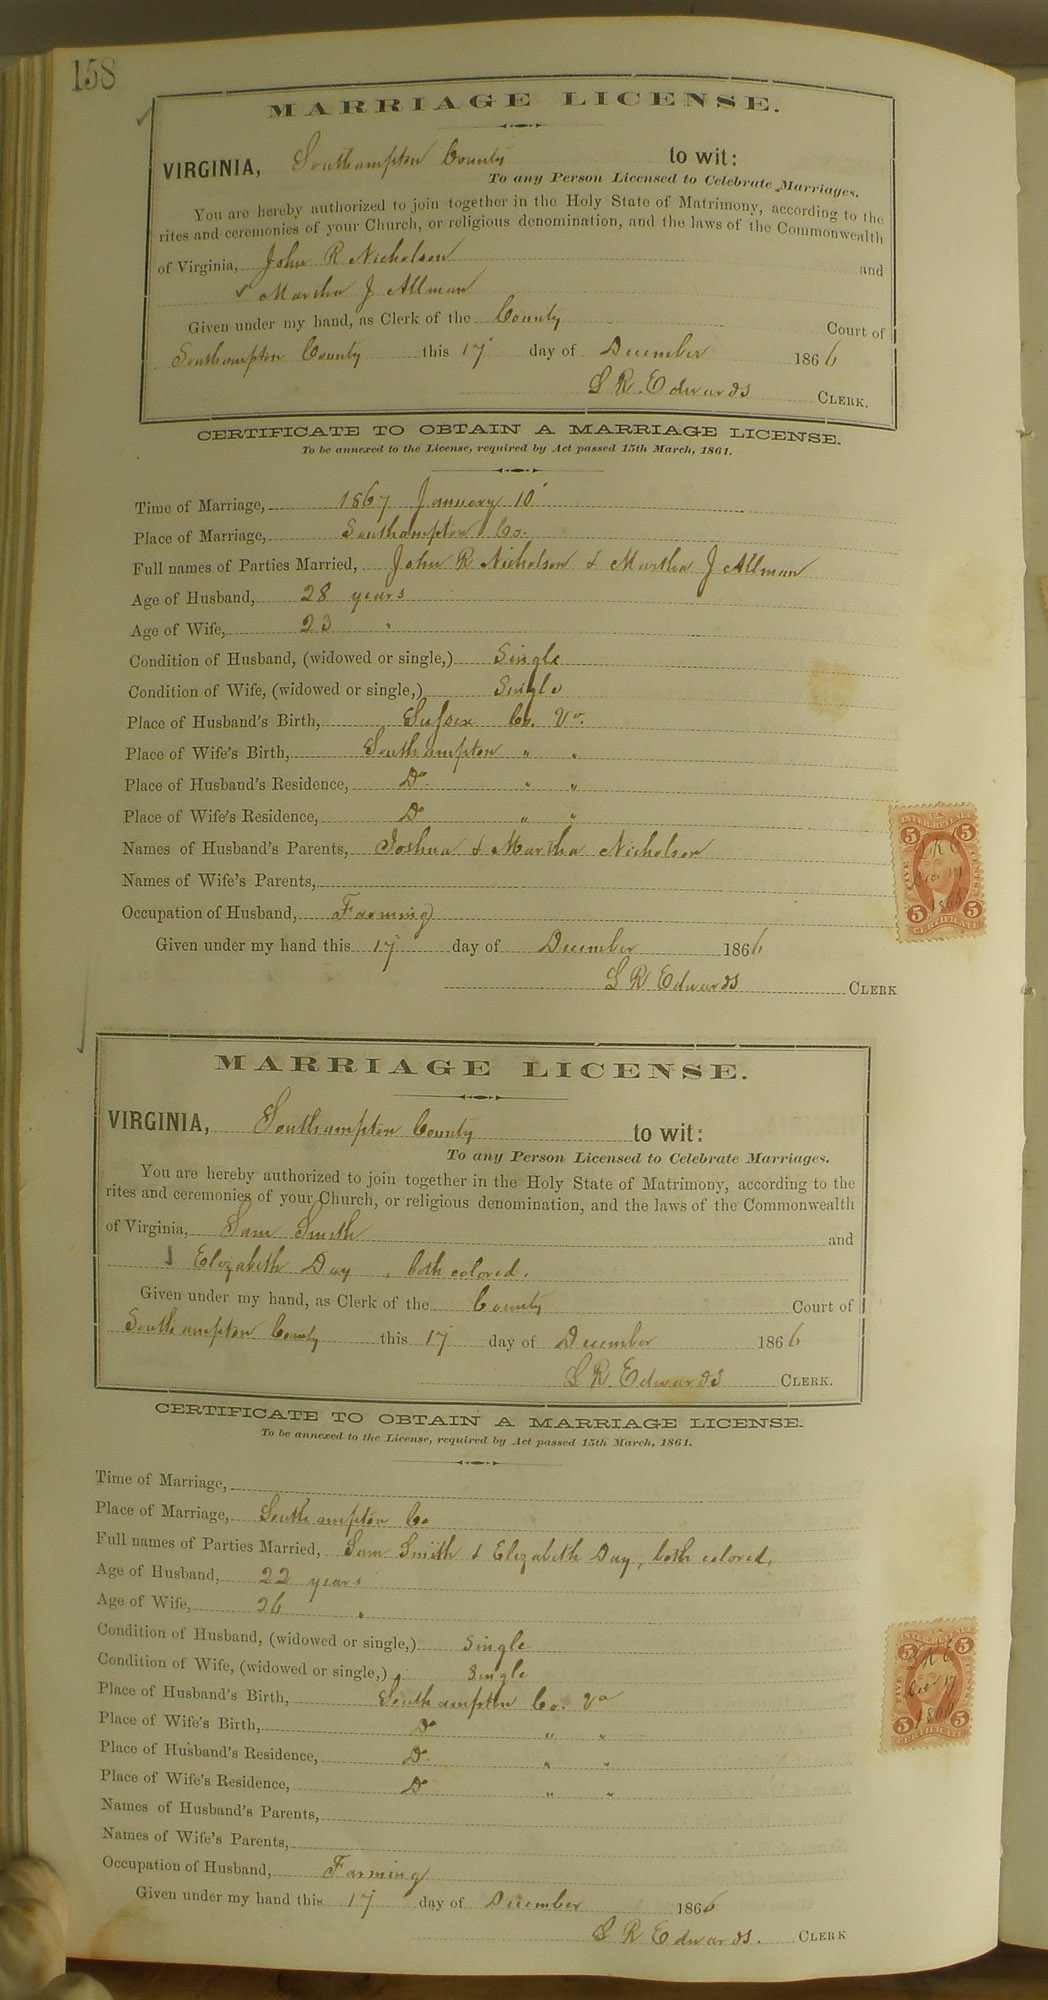 158
MARRIAGE LICENSE.
VIRGINIA, Southampton County to wit:
To any Person Licensed to Celebrate Marriages.
You are hereby authorized to join together in the Holy State of Matrimony, according to the
rites and ceremonies of your Church, or religious denomination, and the laws of the Commonwealth
of Virginia, John R Nicholson and
Martha J Allman
Given under my hand, as Clerk of the County Court of
Southampton County this 17 day of December 1866
L R. Edwards CLERK.
CERTIFICATE TO OBTAIN A MARRIAGE LICENSE.
To be annexed to the License, required by Act passed 15th March, 1861.
Time of Marriage, 1867 January 10
Place of Marriage, Southampton Co.
Full names of Parties Married, John R Nicholson & Martha J Allman
Age of Husband, 28 years
Age of Wife, 23 "
Condition of Husband, (widowed or single,) Single
Condition of Wife, (widowed or single,) Single
Place of Husband's Birth, Sussex Co. Va.
Place of Wife's Birth, Southampton " "
Place of Husband's Residence, Do. " "
Place of Wife's Residence, Do " "
Names of Husband's Parents, Joshua & Martha Nicholson
Names of Wife's Parents,
Occupation of Husband, Farming
Given under my hand this 17 day of December 1866
L R Edwards CLERK
INTER. REVENUE
5 5
FIVE CENTS
L R E
Dec 17
1866
5 5
CERTIFICATE
MARRIAGE LICENSE.
VIRGINIA, Southampton County to wit:
To any Person Licensed to Celebrate Marriages.
You are hereby authorized to join together in the Holy State of Matrimony, according to the
rites and ceremonies of your Church, or religious denomination, and the laws of the Commonwealth
of Virginia, Sam Smith and
Elizabeth Day, both colored.
Given under my hand, as Clerk of the County Court of
Southampton County this 17 day of December 1866
L R. Edwards CLERK.
CERTIFICATE TO OBTAIN A MARRIAGE LICENSE.
To be annexed to the License, required by Act passed 15th March, 1861.
Time of Marriage,
Place of Marriage, Southampton Co
Full names of Parties Married, Sam Smith & Elizabeth Day, both colored,
Age of Husband, 22 years
Age of Wife, 26 "
Condition of Husband, (widowed or single,) Single
Condition of Wife, (widowed or single,) Single
Place of Husband's Birth, Southampton Co. Va
Place of Wife's Birth, Do " "
Place of Husband's Residence, Do. " "
Place of Wife's Residence, Do " "
Names of Husband's Parents,
Names of Wife's Parents,
Occupation of Husband, Farming
Given under my hand this 17 day of December 1866
L R Edwards. CLERK
INTER. REVENUE
5 5
L R E
Dec 17
1866
5 5
CERTIFICATE